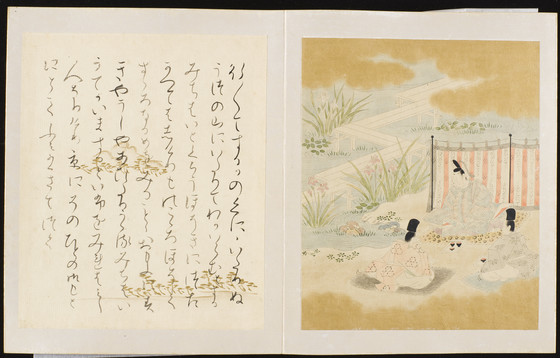 行〱てするかのくにゝいたりぬ
うつの山にいたりてわかいらむとする
みちはいとくらうほそきにつた
かえてはしけりものこゝろほそく
すゝろなるめをみることゝおもふにす
きやうしやあひたりかゝるみちはい
かてかいまするといふをみれはみし
人なりけり京にその人の御もと
にとてふみかきてつく